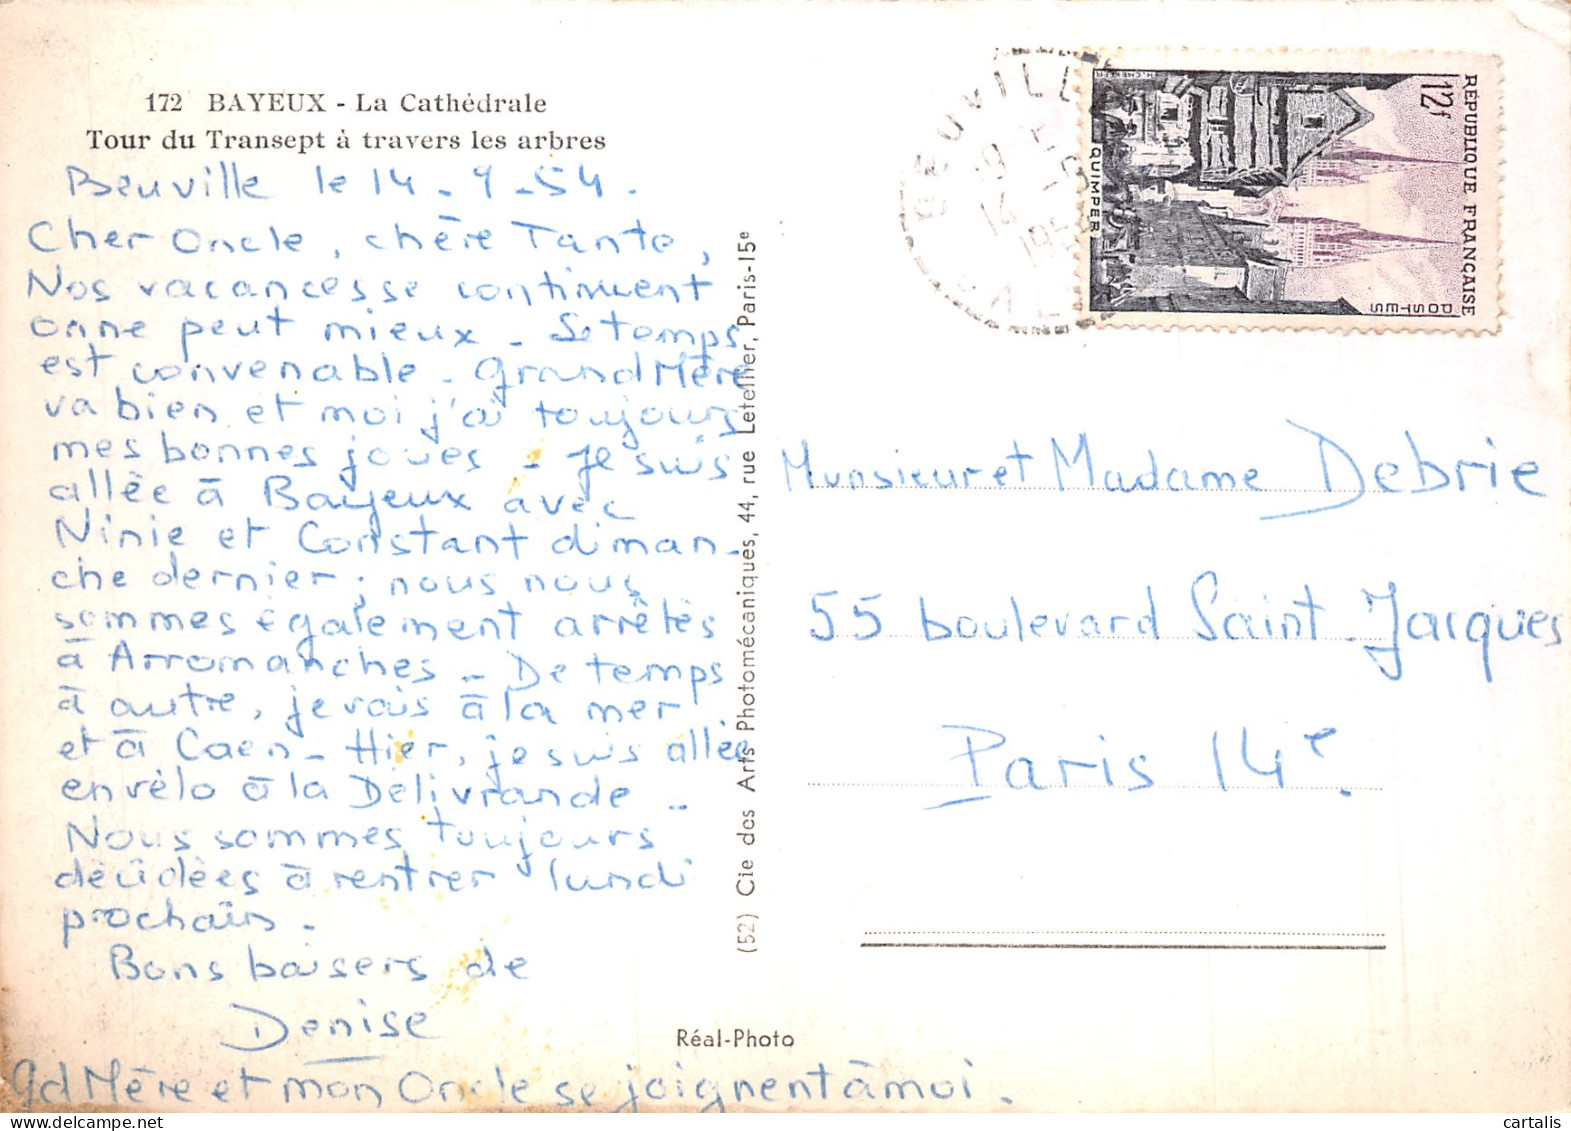 172 BAYEUX - La Cathédrale
Tour du Transept à travers les arbres
Beuville le 14-9-54.
Cher Oncle, chère Tante,
Nos vacances se continuent
on ne peut mieux - Le temps
est convenable - Grand Mère
va bien et moi j'ai toujours
mes bonnes joues - Je suis
allée à Bayeux avec
Ninie et Constant diman-
che dernier ; nous nous
sommes également arrêtés
à Arromanches - De temps
à autre, je vais à la mer
et à Caen - Hier, je suis allée
en vélo à la Délivrande -
Nous sommes toujours
décidées à rentrer lundi
prochain.
Bons baisers de
Denise
Gd Mère et mon Oncle se joignent à moi.
(52) Cie des Arts Photomécaniques, 44, rue Letellier, Paris-15e
Réal-Photo
BEUVILLE
14 -9
195
REPUBLIQUE FRANÇAISE
POSTES
12f
QUIMPER
Monsieur et Madame Debrie
55 boulevard Saint-Jacques
Paris 14e.
cartalis